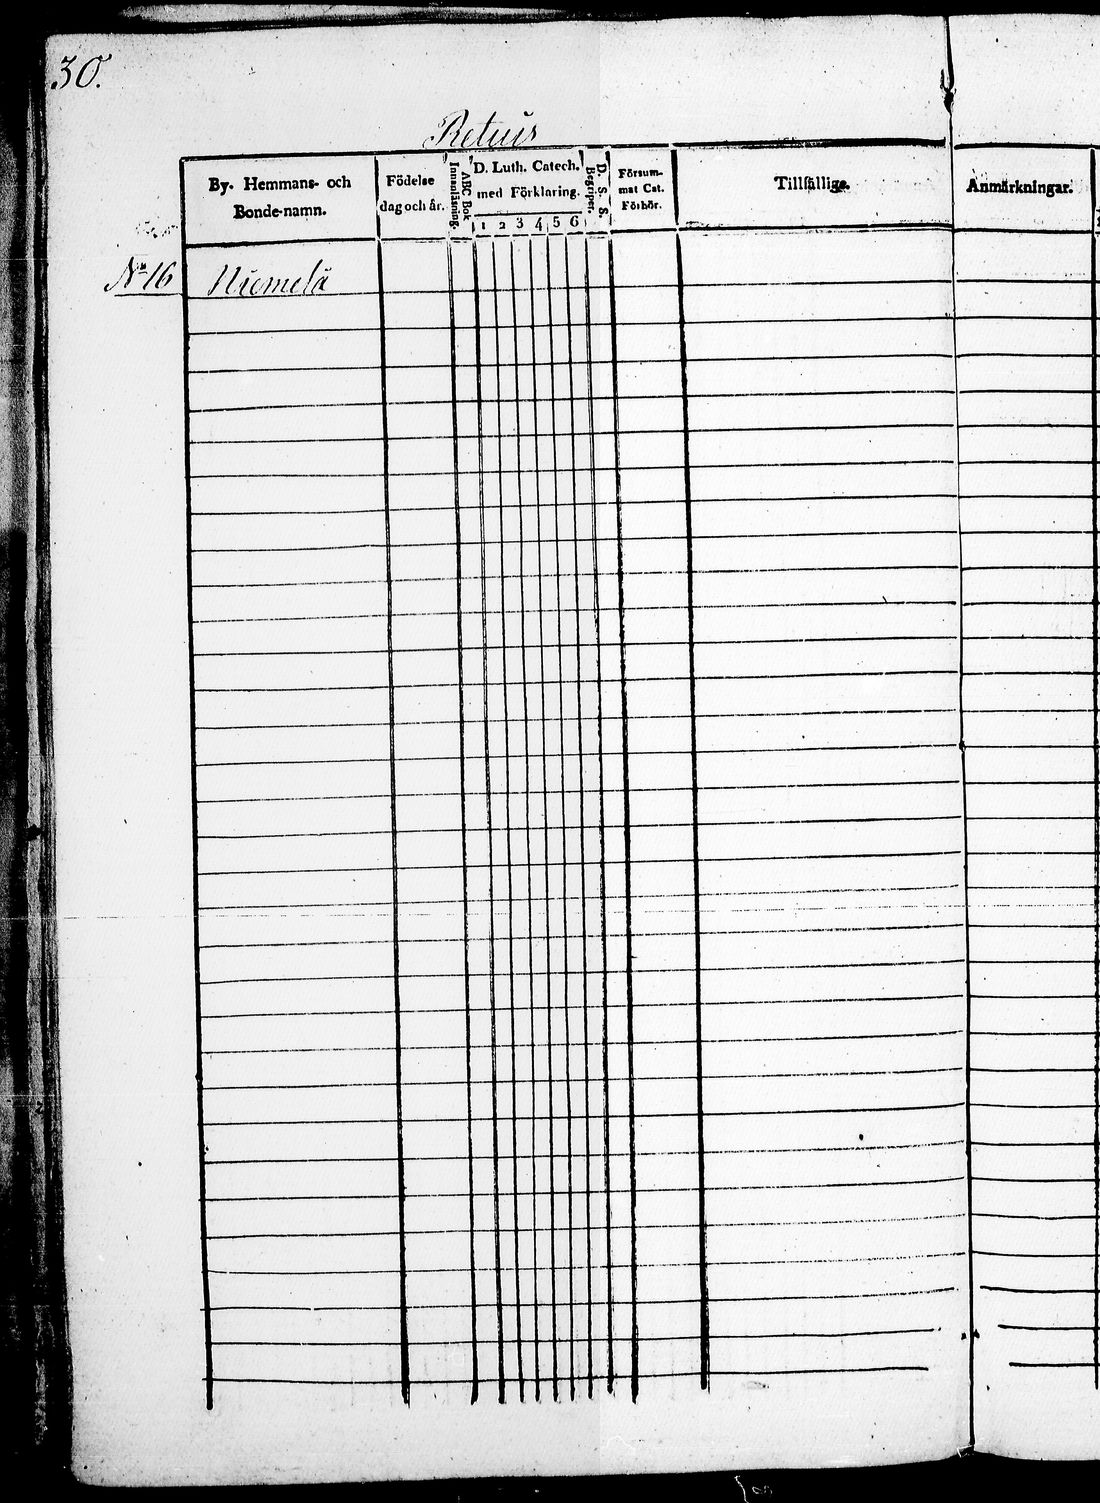 30.
Retuis
By. Hemmans- och Bonde-namn.
Födelse dag och år.
ABC Bok Innanläsning.
D. Luth. Catech. med Förklaring.
1 2 3 4 5 6
D. S. S. Begriper.
Försum-mat Cat. Förhör.
Tillfällige.
Anmärkningar.
No 16 Niemelä